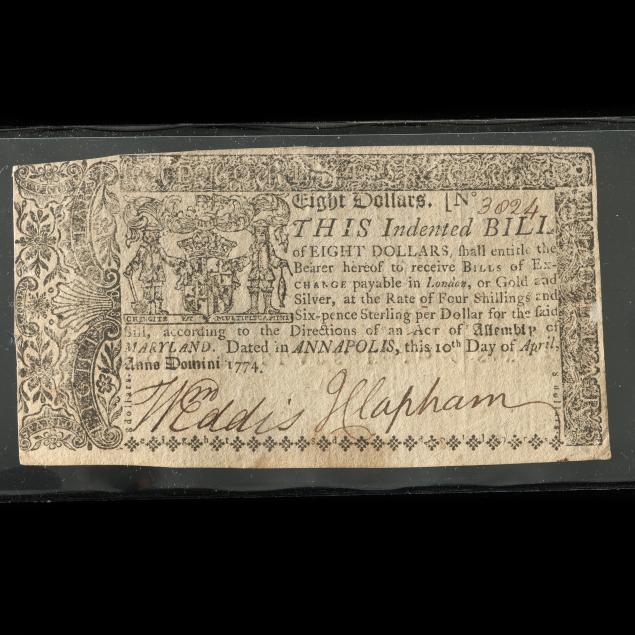 Eight Dollars. [N° 3824
THIS Indented BILL
of EIGHT DOLLARS, shall entitle the
Bearer hereof to receive BILLS of EX-
CHANGE payable in London, or Gold and
Silver, at the Rate of Four Shillings and
Six-pence Sterling per Dollar for the said
CRESCITE ET MULTIPLICAMINI
Bill, according to the Directions of an Act of Assembly of
MARYLAND. Dated in ANNAPOLIS, this 10th Day of April,
Anno Domini 1774.
Wm Eddis J Clapham
dollars
eight